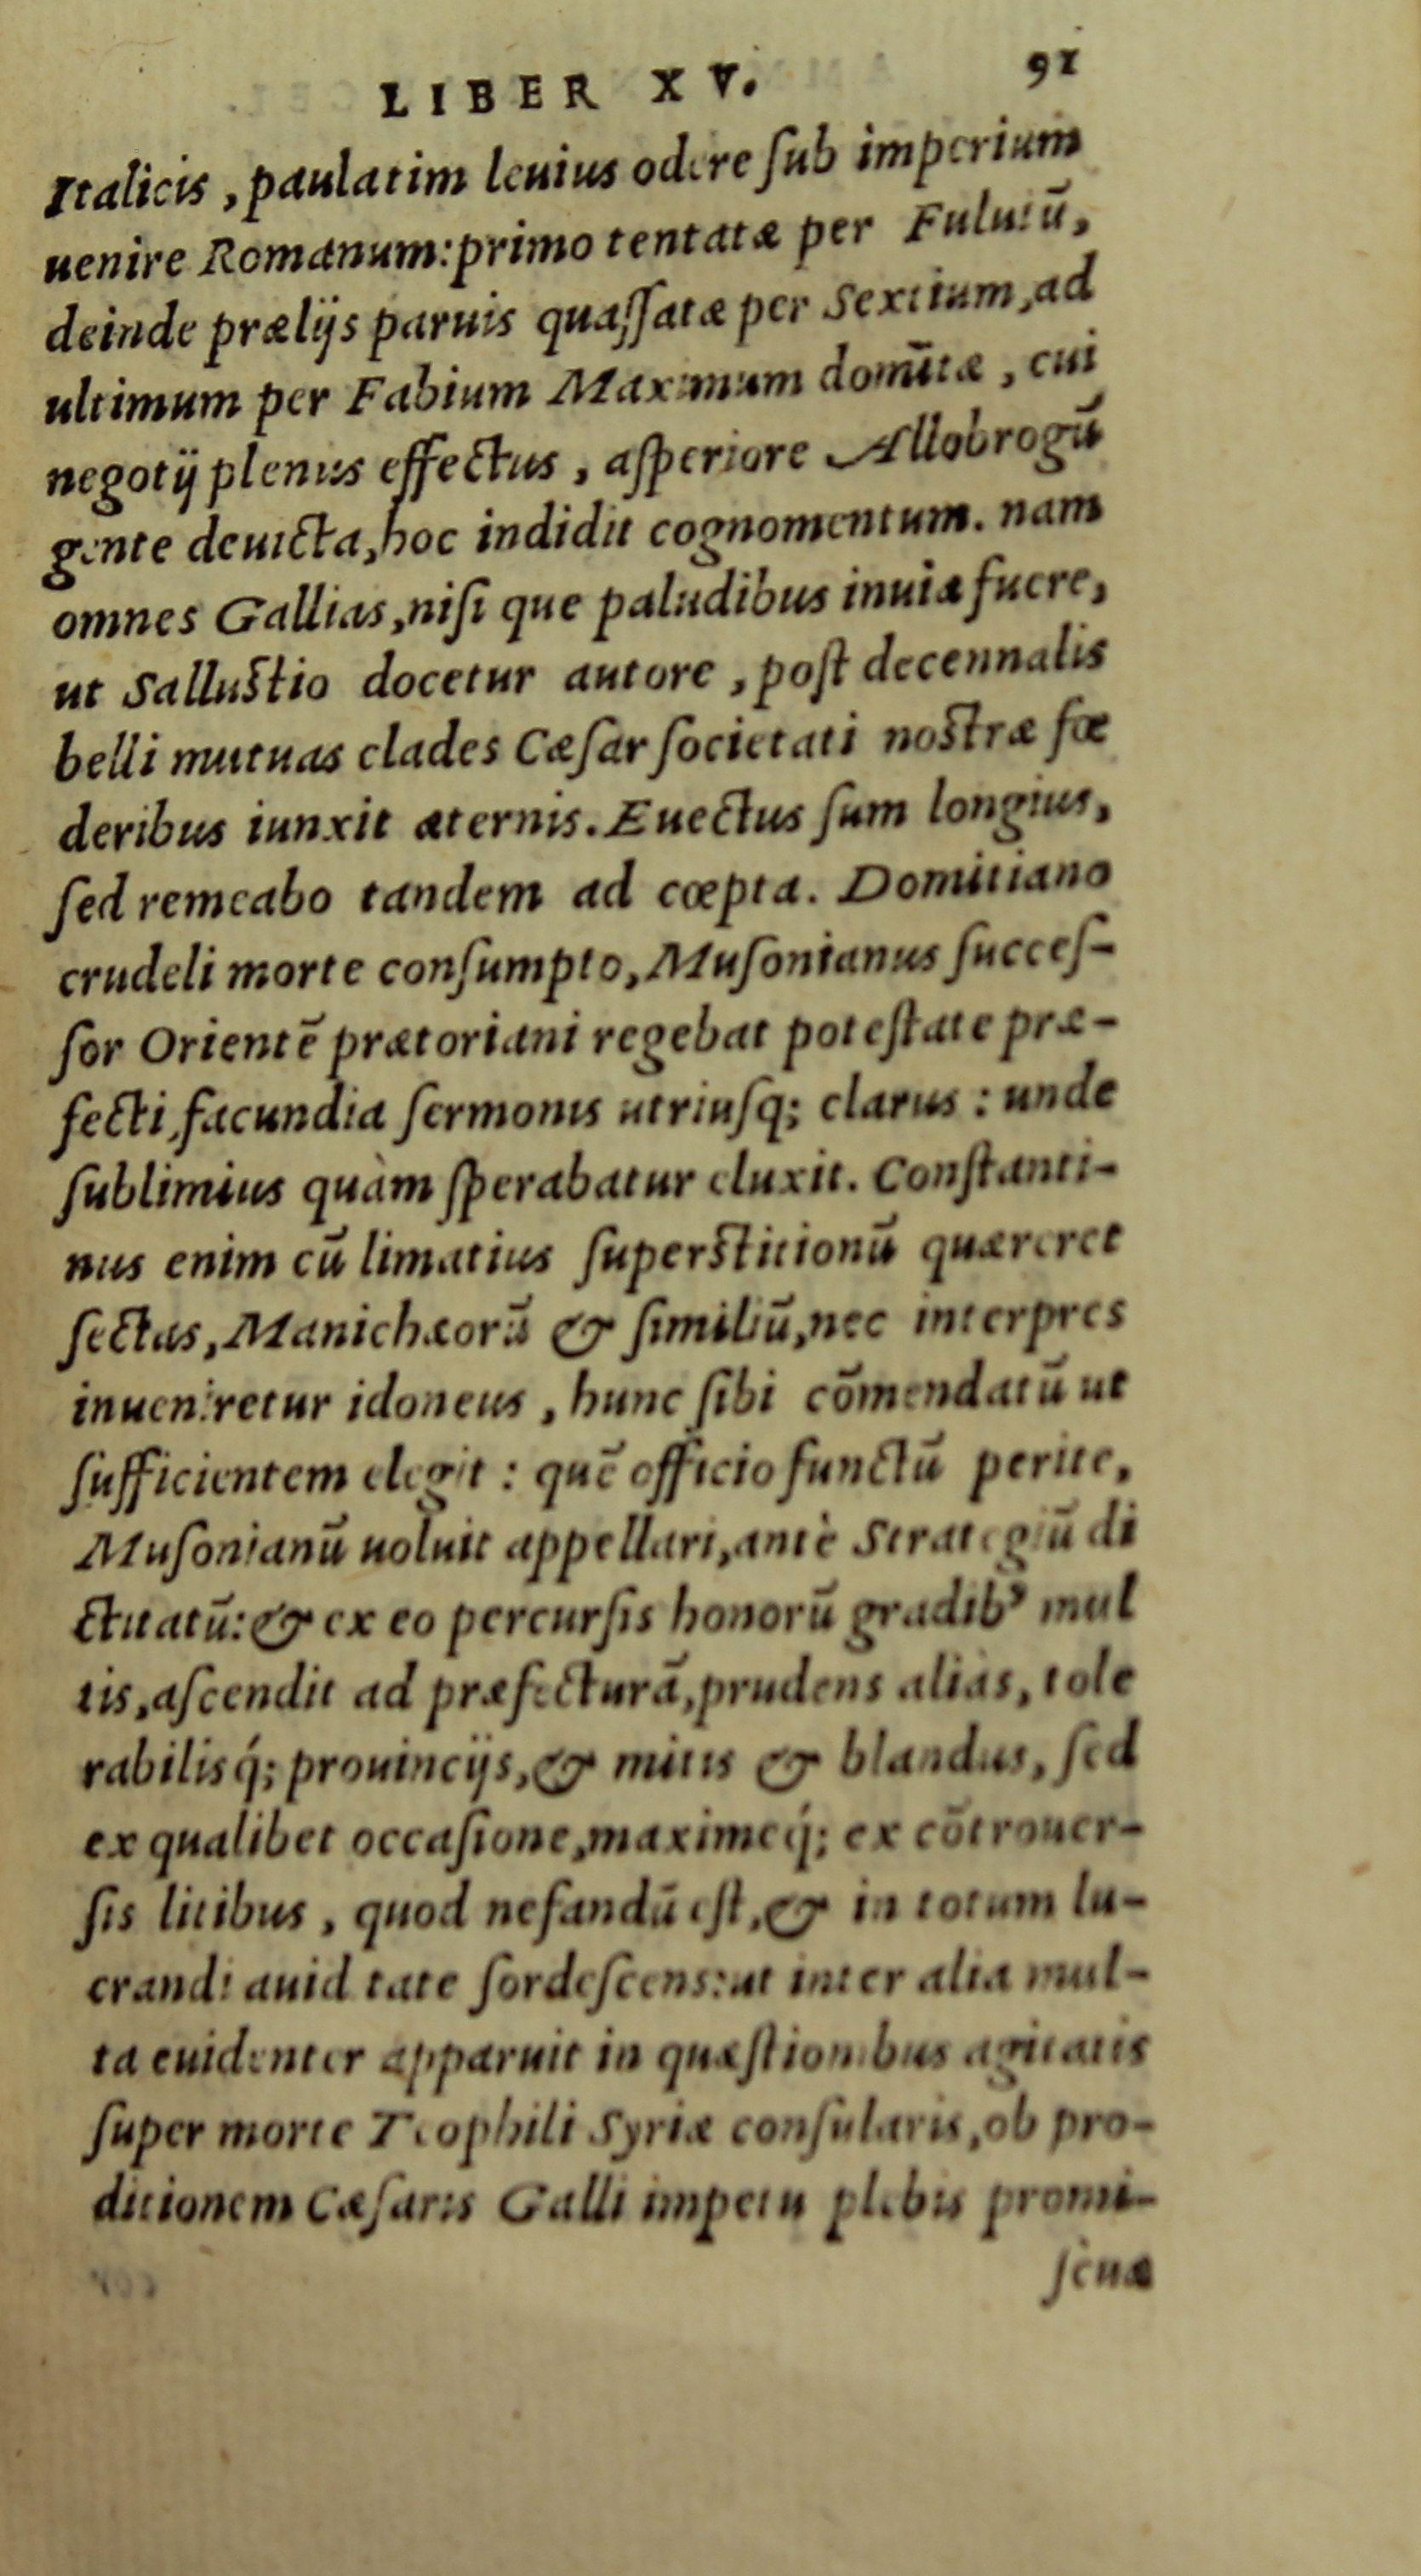 LIBER XV. 91
Italicis, paulatim leuius odere ſub imperium
uenire Romanum: primo tentatæ per Fuluiū,
deinde prælijs paruis quaſſatæ per Sextium, ad
ultimum per Fabium Maximum domitæ, cui
negotij plenus effectus, aſperiore Allobrogū
gente deuicta, hoc indidit cognomentum. nam
omnes Gallias, niſi que paludibus inuiæ fuere,
ut Salluſtio docetur autore, poſt decennalis
belli mutuas clades Cæſar ſocietati noſtræ fœ
deribus iunxit æternis. Euectus ſum longius,
ſed remeabo tandem ad cœpta. Domitiano
crudeli morte conſumpto, Muſonianus ſucceſ-
ſor Orientē prætoriani regebat poteſtate præ-
fecti, facundia ſermonis utriuſq; clarus: unde
ſublimius quàm ſperabatur eluxit. Conſtanti-
nus enim cū limatius ſuperſtitionū quæreret
ſectas, Manichæorū & ſimiliū, nec interpres
inueniretur idoneus, hunc ſibi cōmendatū ut
ſufficientem elegit: quē officio functū perite,
Muſonianū uoluit appellari, antè Strategiū di
ctitatū: & ex eo percurſis honorū gradibꝰ mul
tis, aſcendit ad præfecturā, prudens alias, tole
rabilisq́; prouincijs, & mitis & blandus, ſed
ex qualibet occaſione, maximeq́; ex cōtrouer-
ſis litibus, quod nefandū eſt, & in totum lu-
crandi auiditate ſordeſcens: ut inter alia mul-
ta euidenter apparuit in quæſtionibus agitatis
ſuper morte Teophili Syriæ conſularis, ob pro-
ditionem Cæſaris Galli impetu plebis promi-
ſcuæ